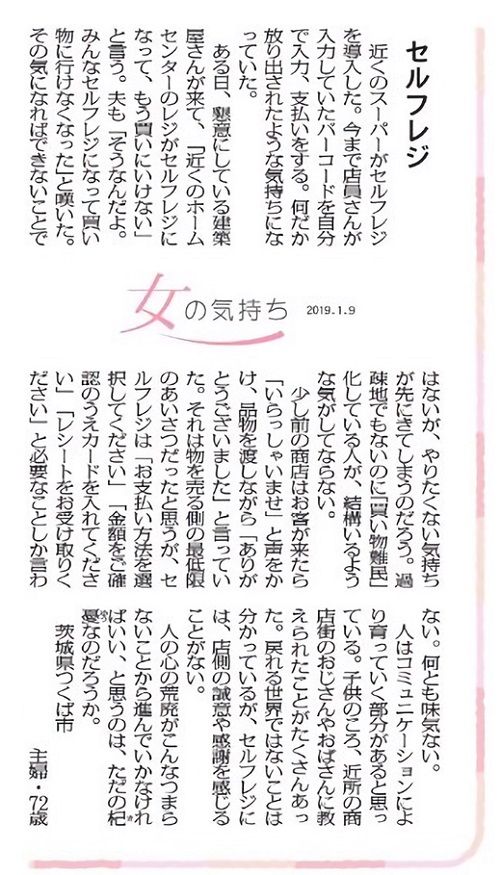 セルフレジ
　近くのスーパーがセルフレジ
を導入した。今まで店員さんが
入力していたバーコードを自分
で入力、支払いをする。何だか
放り出されたような気持ちにな
っていた。
　ある日、懇意にしている建築
屋さんが来て、「近くのホーム
センターのレジがセルフレジに
なって、もう買いにいけない」
と言う。夫も「そうなんだよ。
みんなセルフレジになって買い
物に行けなくなった」と嘆いた。
その気になればできないことで
女の気持ち
2019.1.9
はないが、やりたくない気持ち
が先にきてしまうのだろう。過
疎地でもないのに「買い物難民」
化している人が、結構いるよう
な気がしてならない。
　少し前の商店はお客が来たら
「いらっしゃいませ」と声をか
け、品物を渡しながら「ありが
とうございました」と言ってい
た。それは物を売る側の最低限
のあいさつだったと思うが、セ
ルフレジは「お支払い方法を選
択してください」「金額をご確
認のうえカードを入れてくださ
い」「レシートをお受け取りく
ださい」と必要なことしか言わ
ない。何とも味気ない。
　人はコミュニケーションによ
り育っていく部分があると思っ
ている。子供のころ、近所の商
店街のおじさんやおばさんに教
えられたことがたくさんあっ
た。戻れる世界ではないことは
分かっているが、セルフレジに
は、店側の誠意や感謝を感じる
ことがない。
　人の心の荒廃がこんなつまら
ないことから進んでいかなけれ
ばいい、と思うのは、ただの杞
憂なのだろうか。
茨城県つくば市
主婦・72歳